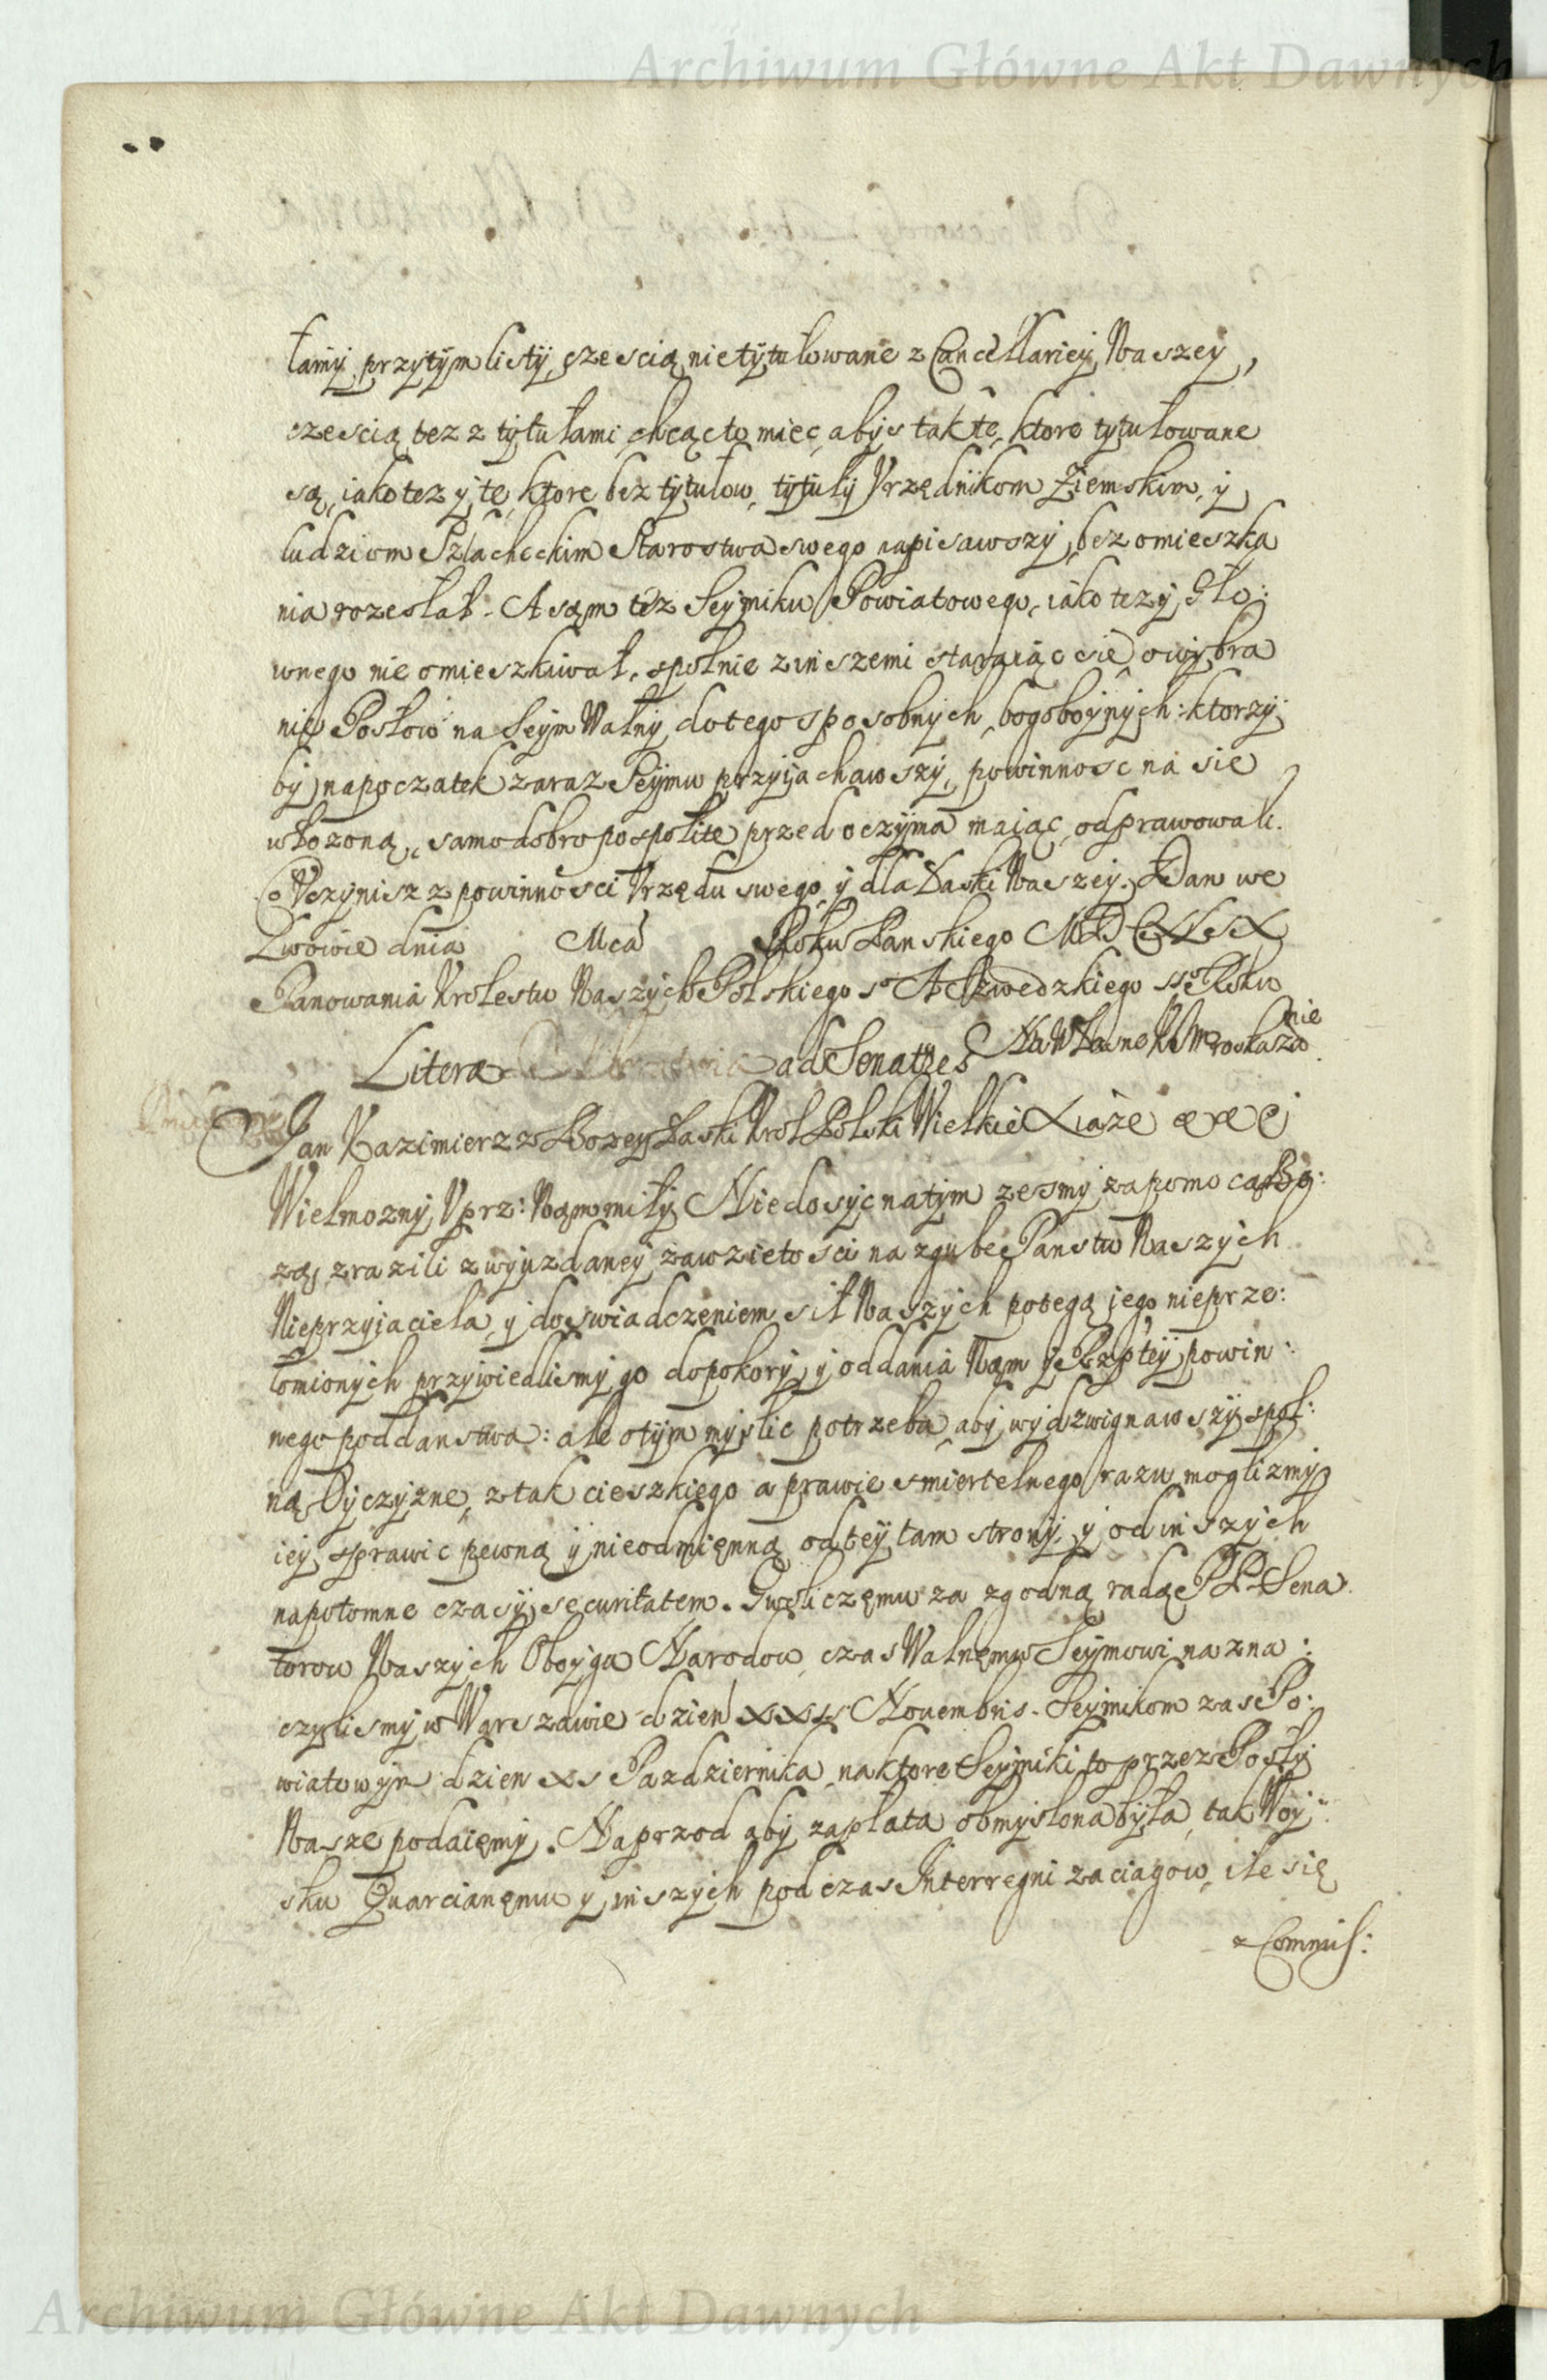 Archiwum Główne Akt Dawnych
łamy przytym listy, czescią nietytułowane z Cancellariey Naszey,
czescią tez z tytułami, chcąc to miec, abys tak te, ktore tytułowane
są, iako tez y te, ktore bez tytułow, tytuły Vrzędnikom Ziemskim, y
ludziom Szlacheckim Starostwa swego napisawszy, bez omieszka
nia rozesłał. A sąm tez Seymiku Powiatowego, iako tez y Gło:
wnego nie omieszkiwał, społnie z inszemi staraiąc się o wybra
nie Posłow na Seym Walny, do tego sposobnych, bogoboynych: ktorzy
by na początek zaraz Seymu przyiachawszy, powinnosc na się
włozoną, samo dobro pospolite przed oczyma maiąc, odprawowali.
Vczynisz z powinnosci Vrzędu swego, y dla Łaski Naszey. Dan we
Lwowie dnia Mca Roku Panskiego
Panowania Krolestw Naszych Polskiego A Szwedzkiego Roku
Na Własne roskaza
nie
Litera ad Senatores
Jan Kazimierz z Bozey Łaski Krol Polski Wielkie Xiąze
Wielmozny Vprz: Nąm miły Nie dosyc na tym zesmy za pomocą Bo:
zą, zrazili z wyuzdaney zawzietosci na zgube Panstw Naszych
Nieprzyiaciela, y doswiadczeniem sił Naszych potegą jego nieprze:
łomionych przywiedlismy go do pokory, y oddania Nąm y Rzptey powin:
nego poddanstwa: ale o tym myslic potrzeba, aby wydzwignawszy spol:
ną Oyczyzne, z tak cieszkiego a prawie smiertelnego razu moglizmy
iey sprawic pewną y nieodmięnną od tey tam strony, y od inszych
napotomne czasy, securitatem. Gwoli częmu za zgodną radą PP Sena
torow Naszych Oboyga Narodow, czas Walnęmu Seymowi nazna:
czylismy w Warszawie dzien Nouembris. Seymikom zas Po:
wiatowym dzien Pazdziernika, na ktore Seymiki to przez Posły
Nasze podaięmy. Naprzod aby zapłata obmyslona była, tak Woy:
sku Quarcianęmu y inszych pod czas Interregni zaciagow, ile się
z Commiss:
Archiwum Główne Akt Dawnych